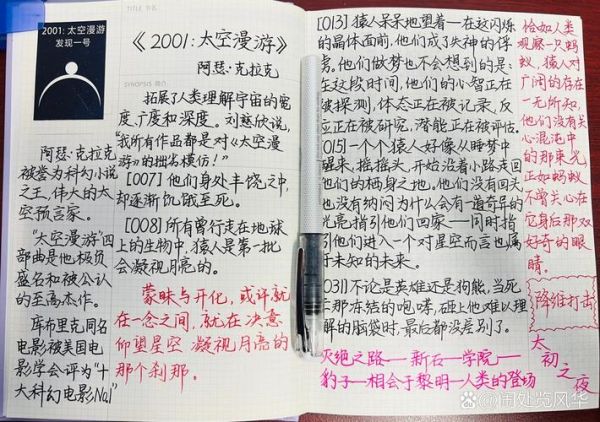 2001: 太空漫游
发现一号
TITLE 书名
《2001:太空漫游》
阿瑟·克拉克
SYNOPSIS 简介
阿瑟·克拉克
被誉为科幻小说
之王,伟大的太
空预言家。
"太空漫游"四
部曲是他极负
盛名和被公认
的至高杰作。
库布里克同名
电影被美国电
影学会评为"十
大科幻电影No.1"
拓展了人类理解宇宙的宽
度、广度和深度。刘慈欣说,
"我所有作品都是对《太空漫
游》的拙劣模仿!"
[007] 他们身处丰饶之中,
却逐渐饥饿至死。
[008] 所有曾行走在地球
上的生物中,猿人是第一批
会凝视月亮的。
蒙昧与开化,或许就
在一念之间,就在决意
仰望星空 凝视月亮的
那个刹那。
[013] 猿人呆呆地望着——在这闪烁
的晶体面前,他们成了失神的俘
虏。他们做梦也不会想到的是:
在这段时间,他们的心智正在
被探测,体态正在被记录,反
应正在被研究,潜能正在被评估。
[015] 一个个猿人好像从睡梦中
醒来,摇摇头,开始沿着小路走回
他们的栖身之地。他们没有回头
也没有纳闷为什么会有一道奇异的
光亮指引他们回家——同时指
引他们进入一个对星空而言也属
于未知的未来。
[031] 不论是英雄还是狗熊,当死
于那冻结的咆哮,碰上他难以理
解的脑袋时,最后都没差别了。
灭绝之路——新石——学院——
豹子——相会于黎明——人类的登场
恰如人类
观察一只蚂
蚁,猿人对
广阔的存在
一无所知,
他们没有关
心混沌中
的那束光
正如蚂蚁
不曾关心在
它身后那双
好奇的眼
睛。
降维打击
太
初
之
夜